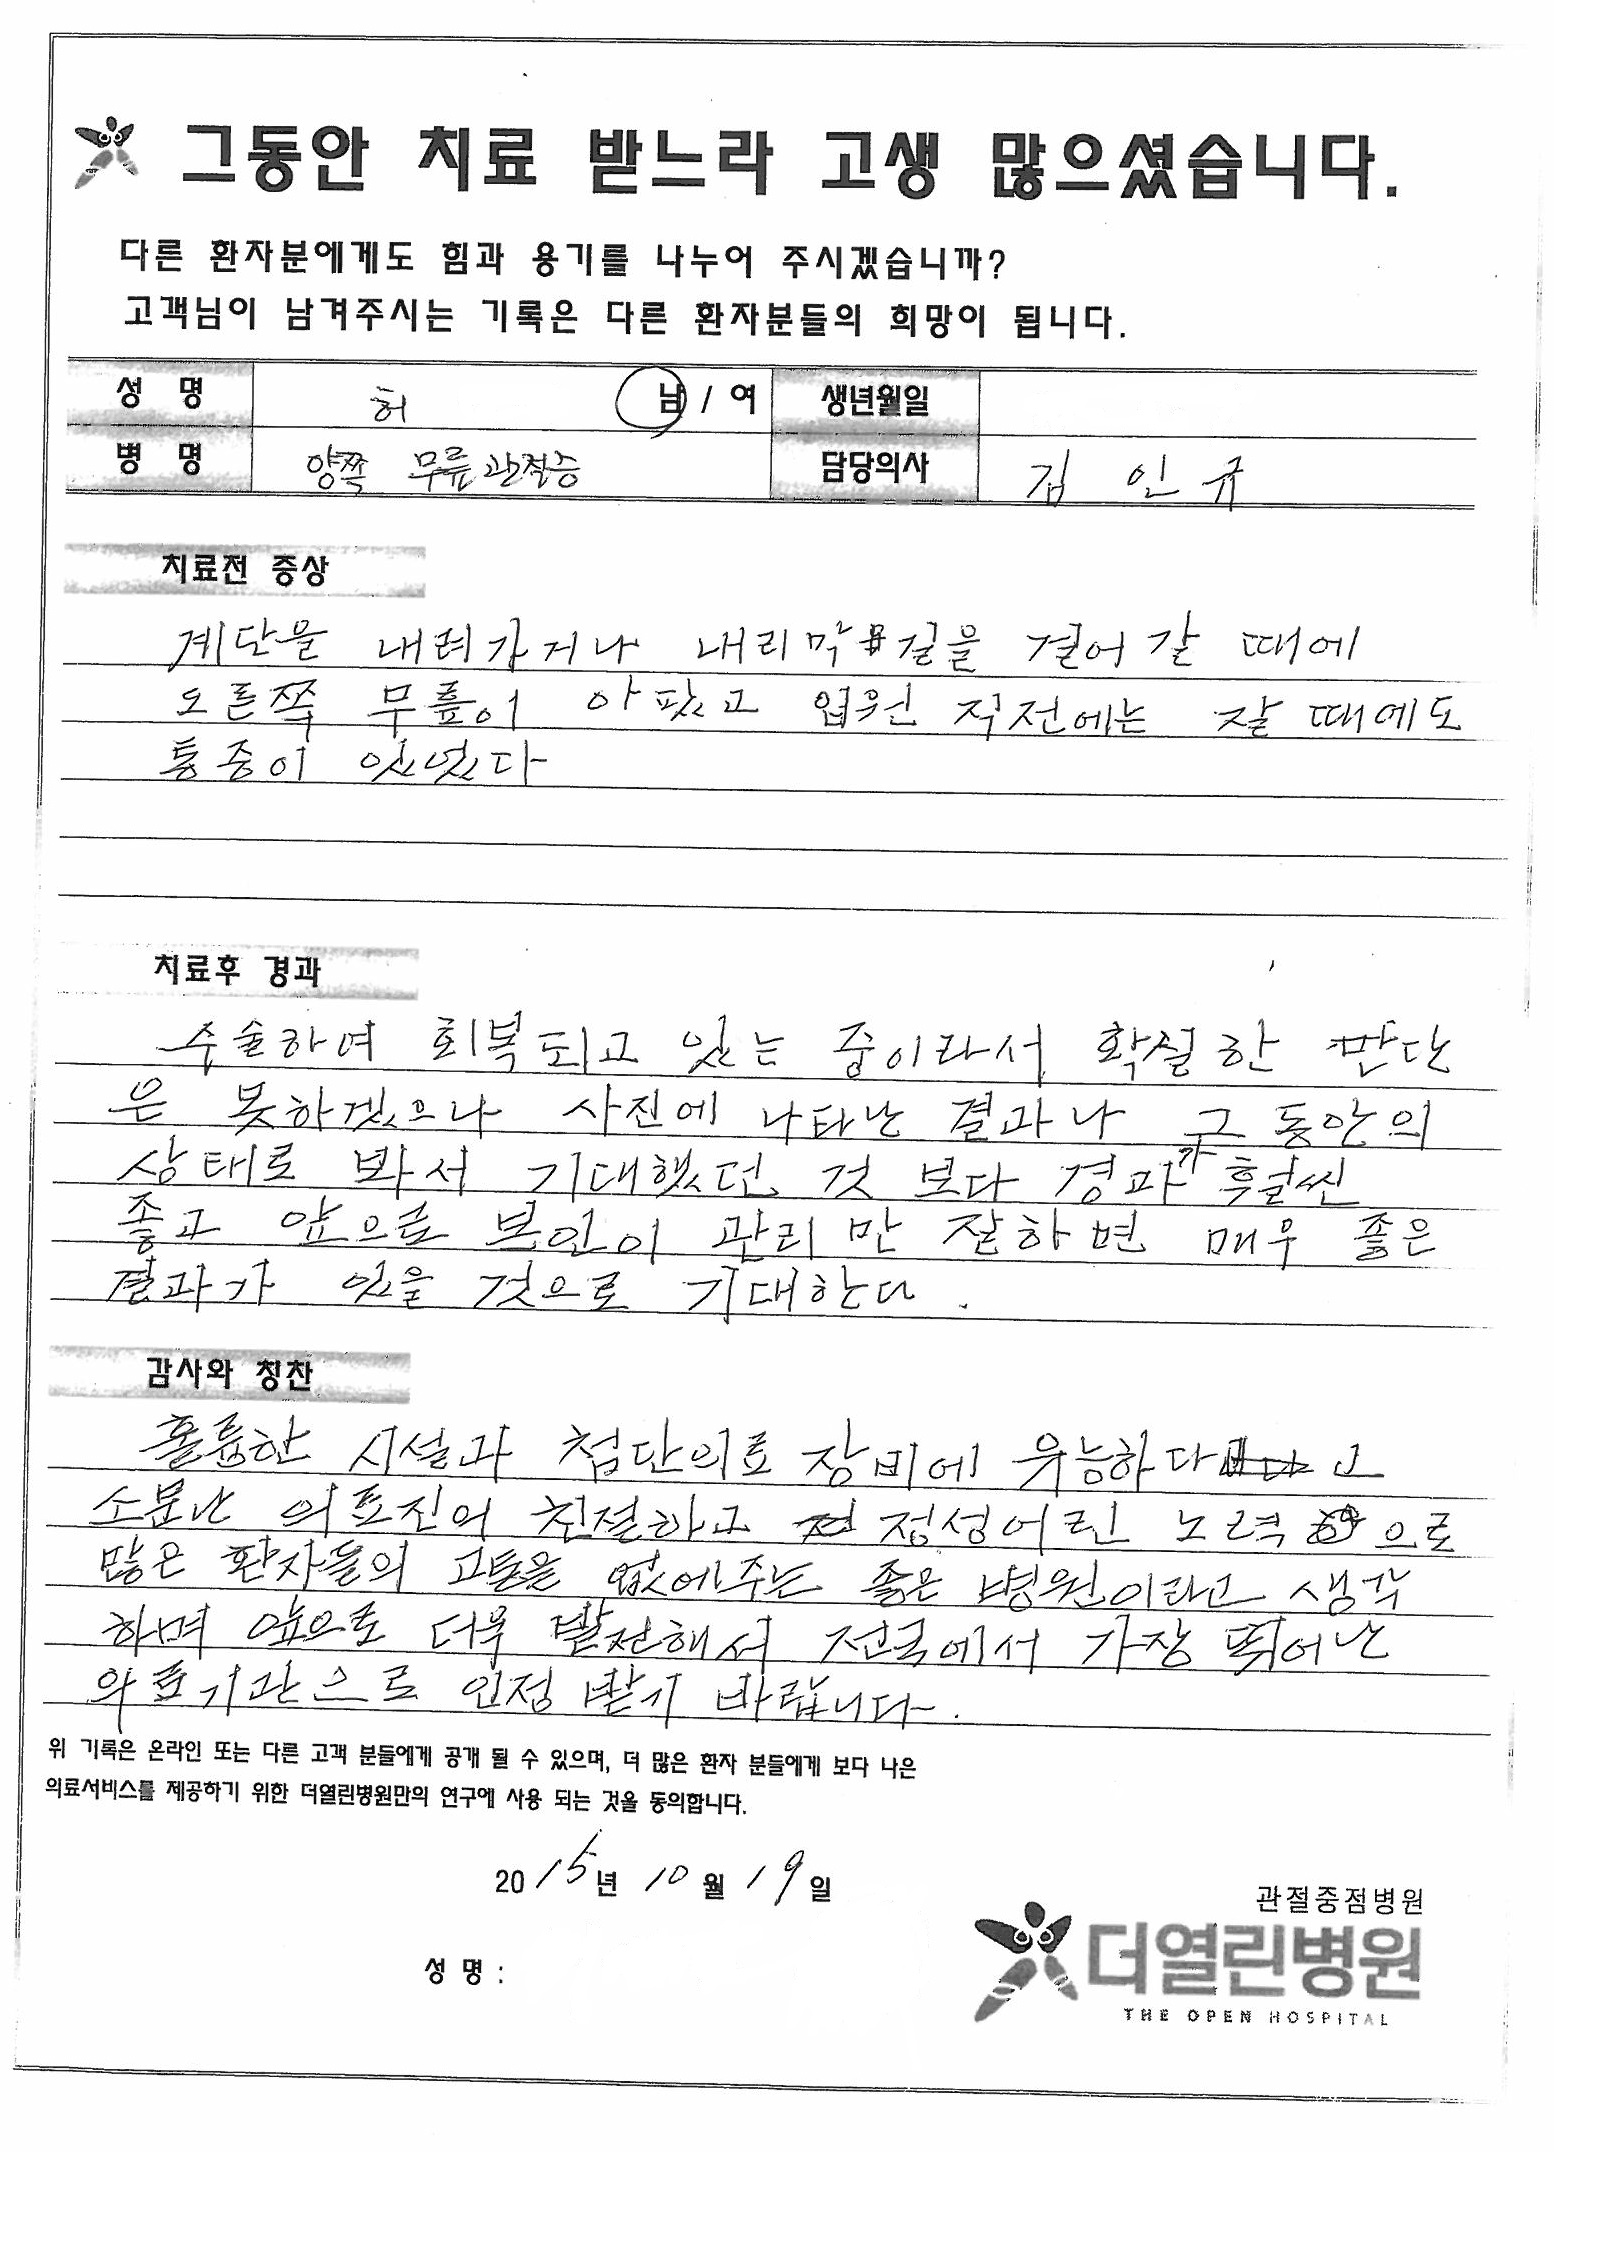 그동안 치료 받느라 고생 많으셨습니다.
다른 환자분에게도 힘과 용기를 나누어 주시겠습니까?
고객님이 남겨주시는 기록은 다른 환자분들의 희망이 됩니다.
성 명 허 남 / 여 생년월일
병 명 양쪽 무릎관절증 담당의사 김 인 규
치료전 증상
계단을 내려가거나 내리막 길을 걸어갈 때에
오른쪽 무릎이 아팠고 입원 직전에는 잘 때에도
통증이 있었다
치료후 경과
수술하여 회복되고 있는 중이라서 확실한 판단
은 못하겠으나 사진에 나타난 결과나 그 동안의
상태로 봐서 기대했던 것 보다 경과가 훨씬
좋고 앞으로 본인이 관리만 잘하면 매우 좋은
결과가 있을 것으로 기대한다.
감사와 칭찬
훌륭한 시설과 첨단의료 장비에 유능하다고
소문난 의료진의 친절하고 정성어린 노력으로
많은 환자들의 고통을 없에주는 좋은 병원이라고 생각
하며 앞으로 더욱 발전해서 전국에서 가장 뛰어난
의료기관으로 인정 받기 바랍니다.
위 기록은 온라인 또는 다른 고객 분들에게 공개 될 수 있으며, 더 많은 환자 분들에게 보다 나은
의료서비스를 제공하기 위한 더열린병원만의 연구에 사용 되는 것을 동의합니다.
2015년 10월 19일
관절중점병원
더열린병원
THE OPEN HOSPITAL
성 명 :